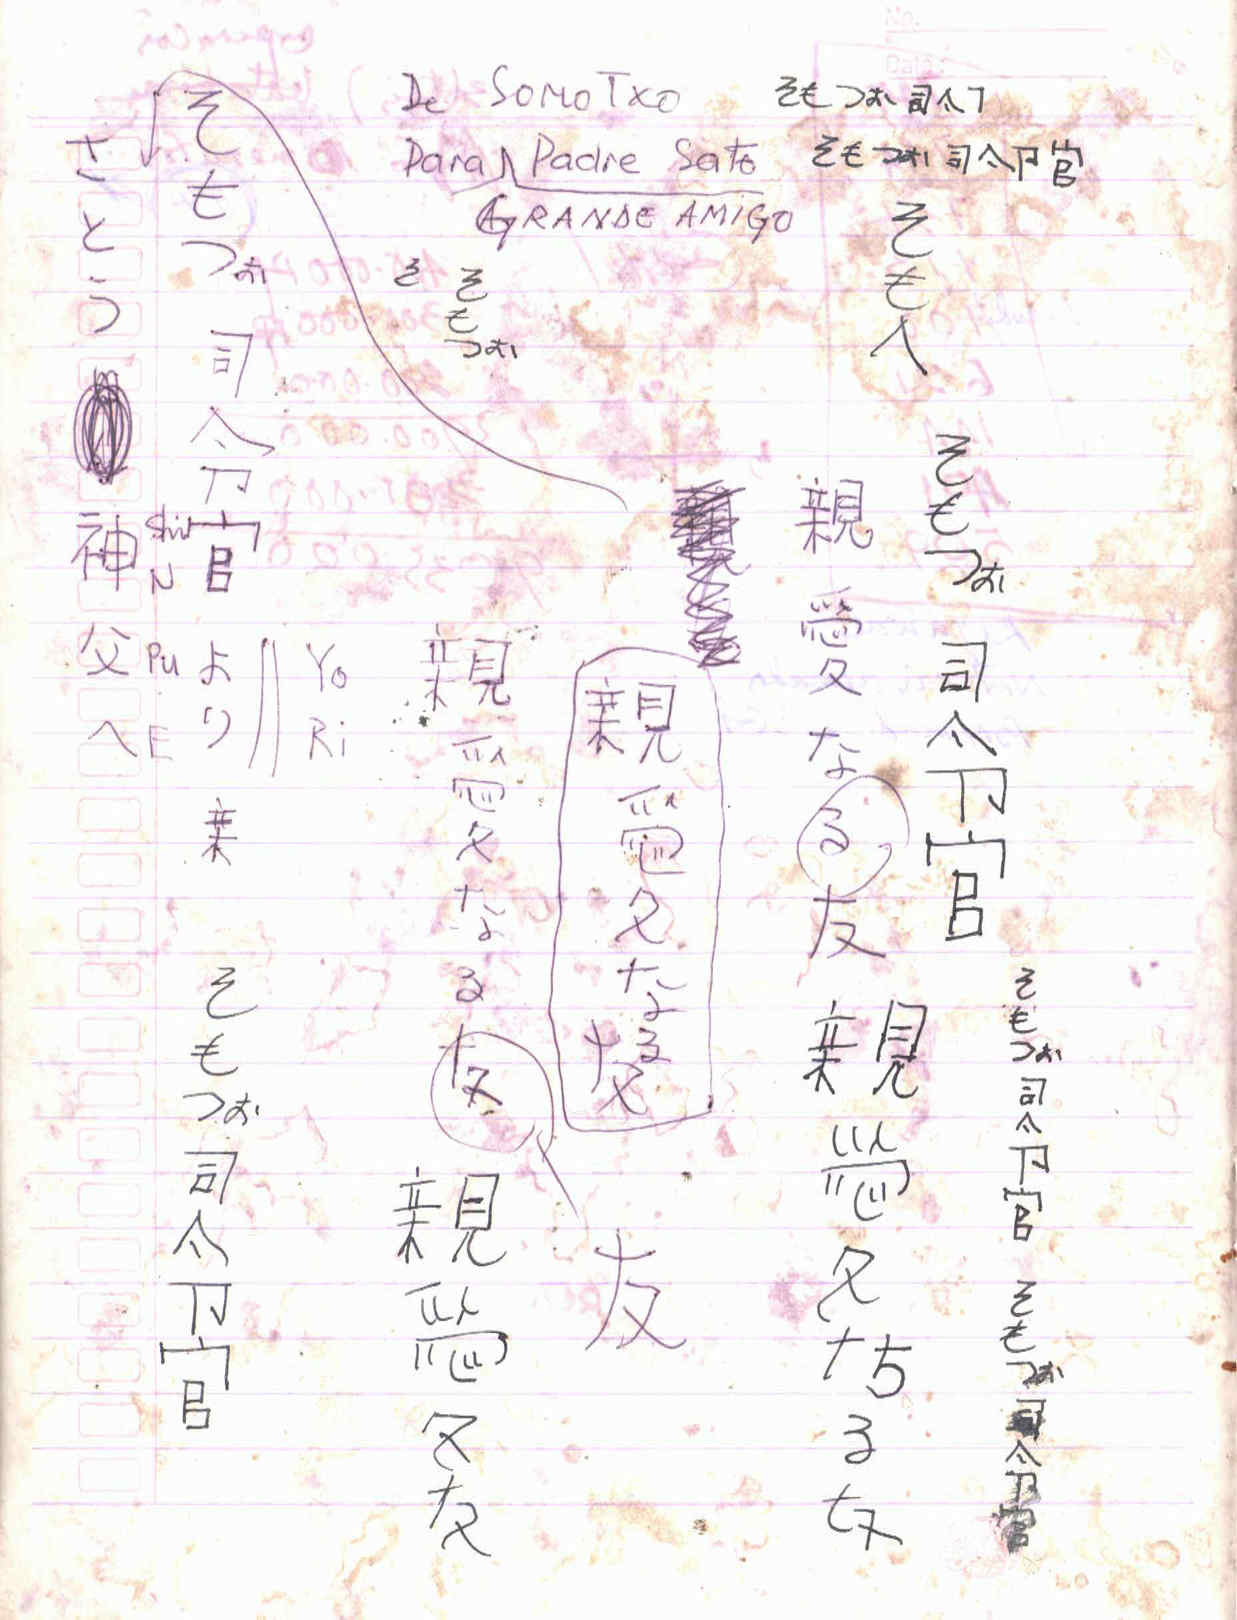 De SOMOTXO そもつお司令
Para Padre Sato そもつお司令官
GRANDE AMIGO
そも人
そもつお司令官
そもつお司令官
そもつお司令官
親愛なる友
親愛なる友
親愛なる友
友
そ
そもつお
親愛なる友
親愛友
そもつお司令官より
Yo
Ri
そもつお司令官
さとう
神父へ
Shi
N
Pu
E